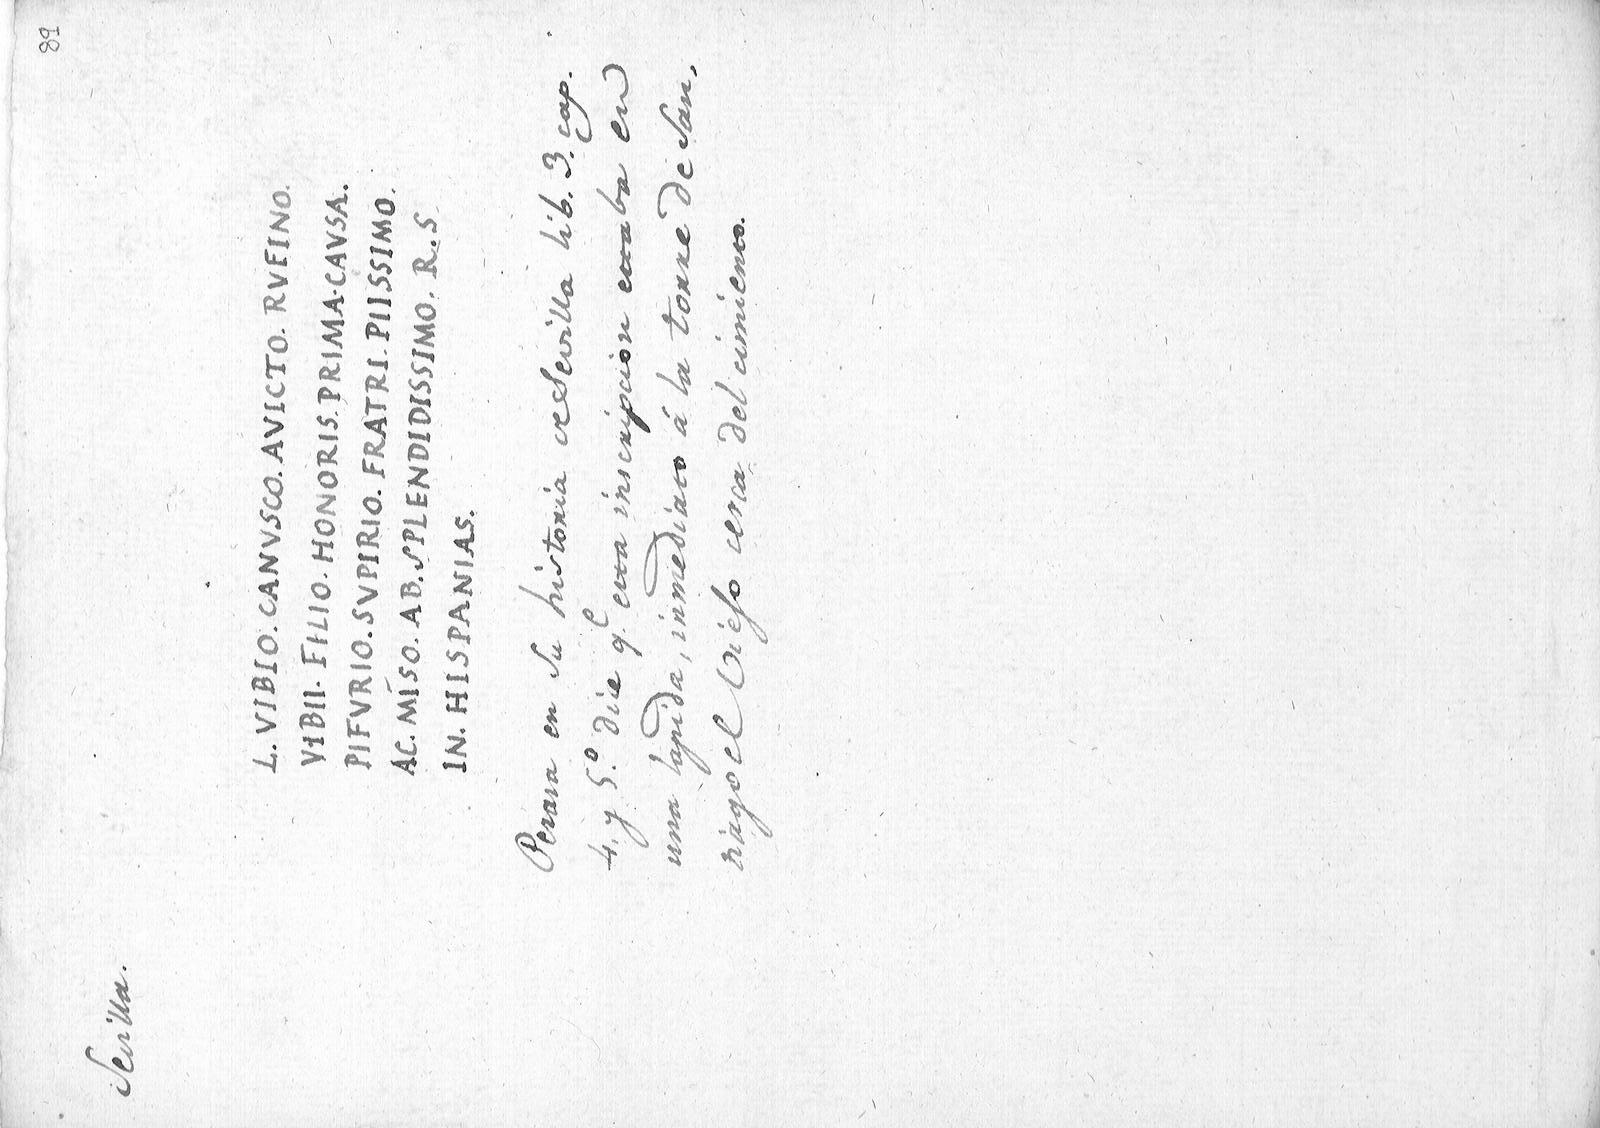 89
Sevilla.
L. VIBIO. CANVSCO. AVICTO. RVFINO.
VIBII. FILIO. HONORIS. PRIMA. CAVSA.
PIFVRIO. SVPIRIO. FRATRI. PIISSIMO.
AC. MISO. AB. SPLENDIDISSIMO. R. S
IN. HISPANIAS.
Peraza en su historia de Sevilla lib. 3. cap.
4. y 5.º dice q.e esta inscripcion estaba en
una lapida, inmediato á la torre de San,
tiago el Viejo cerca del cimiento.